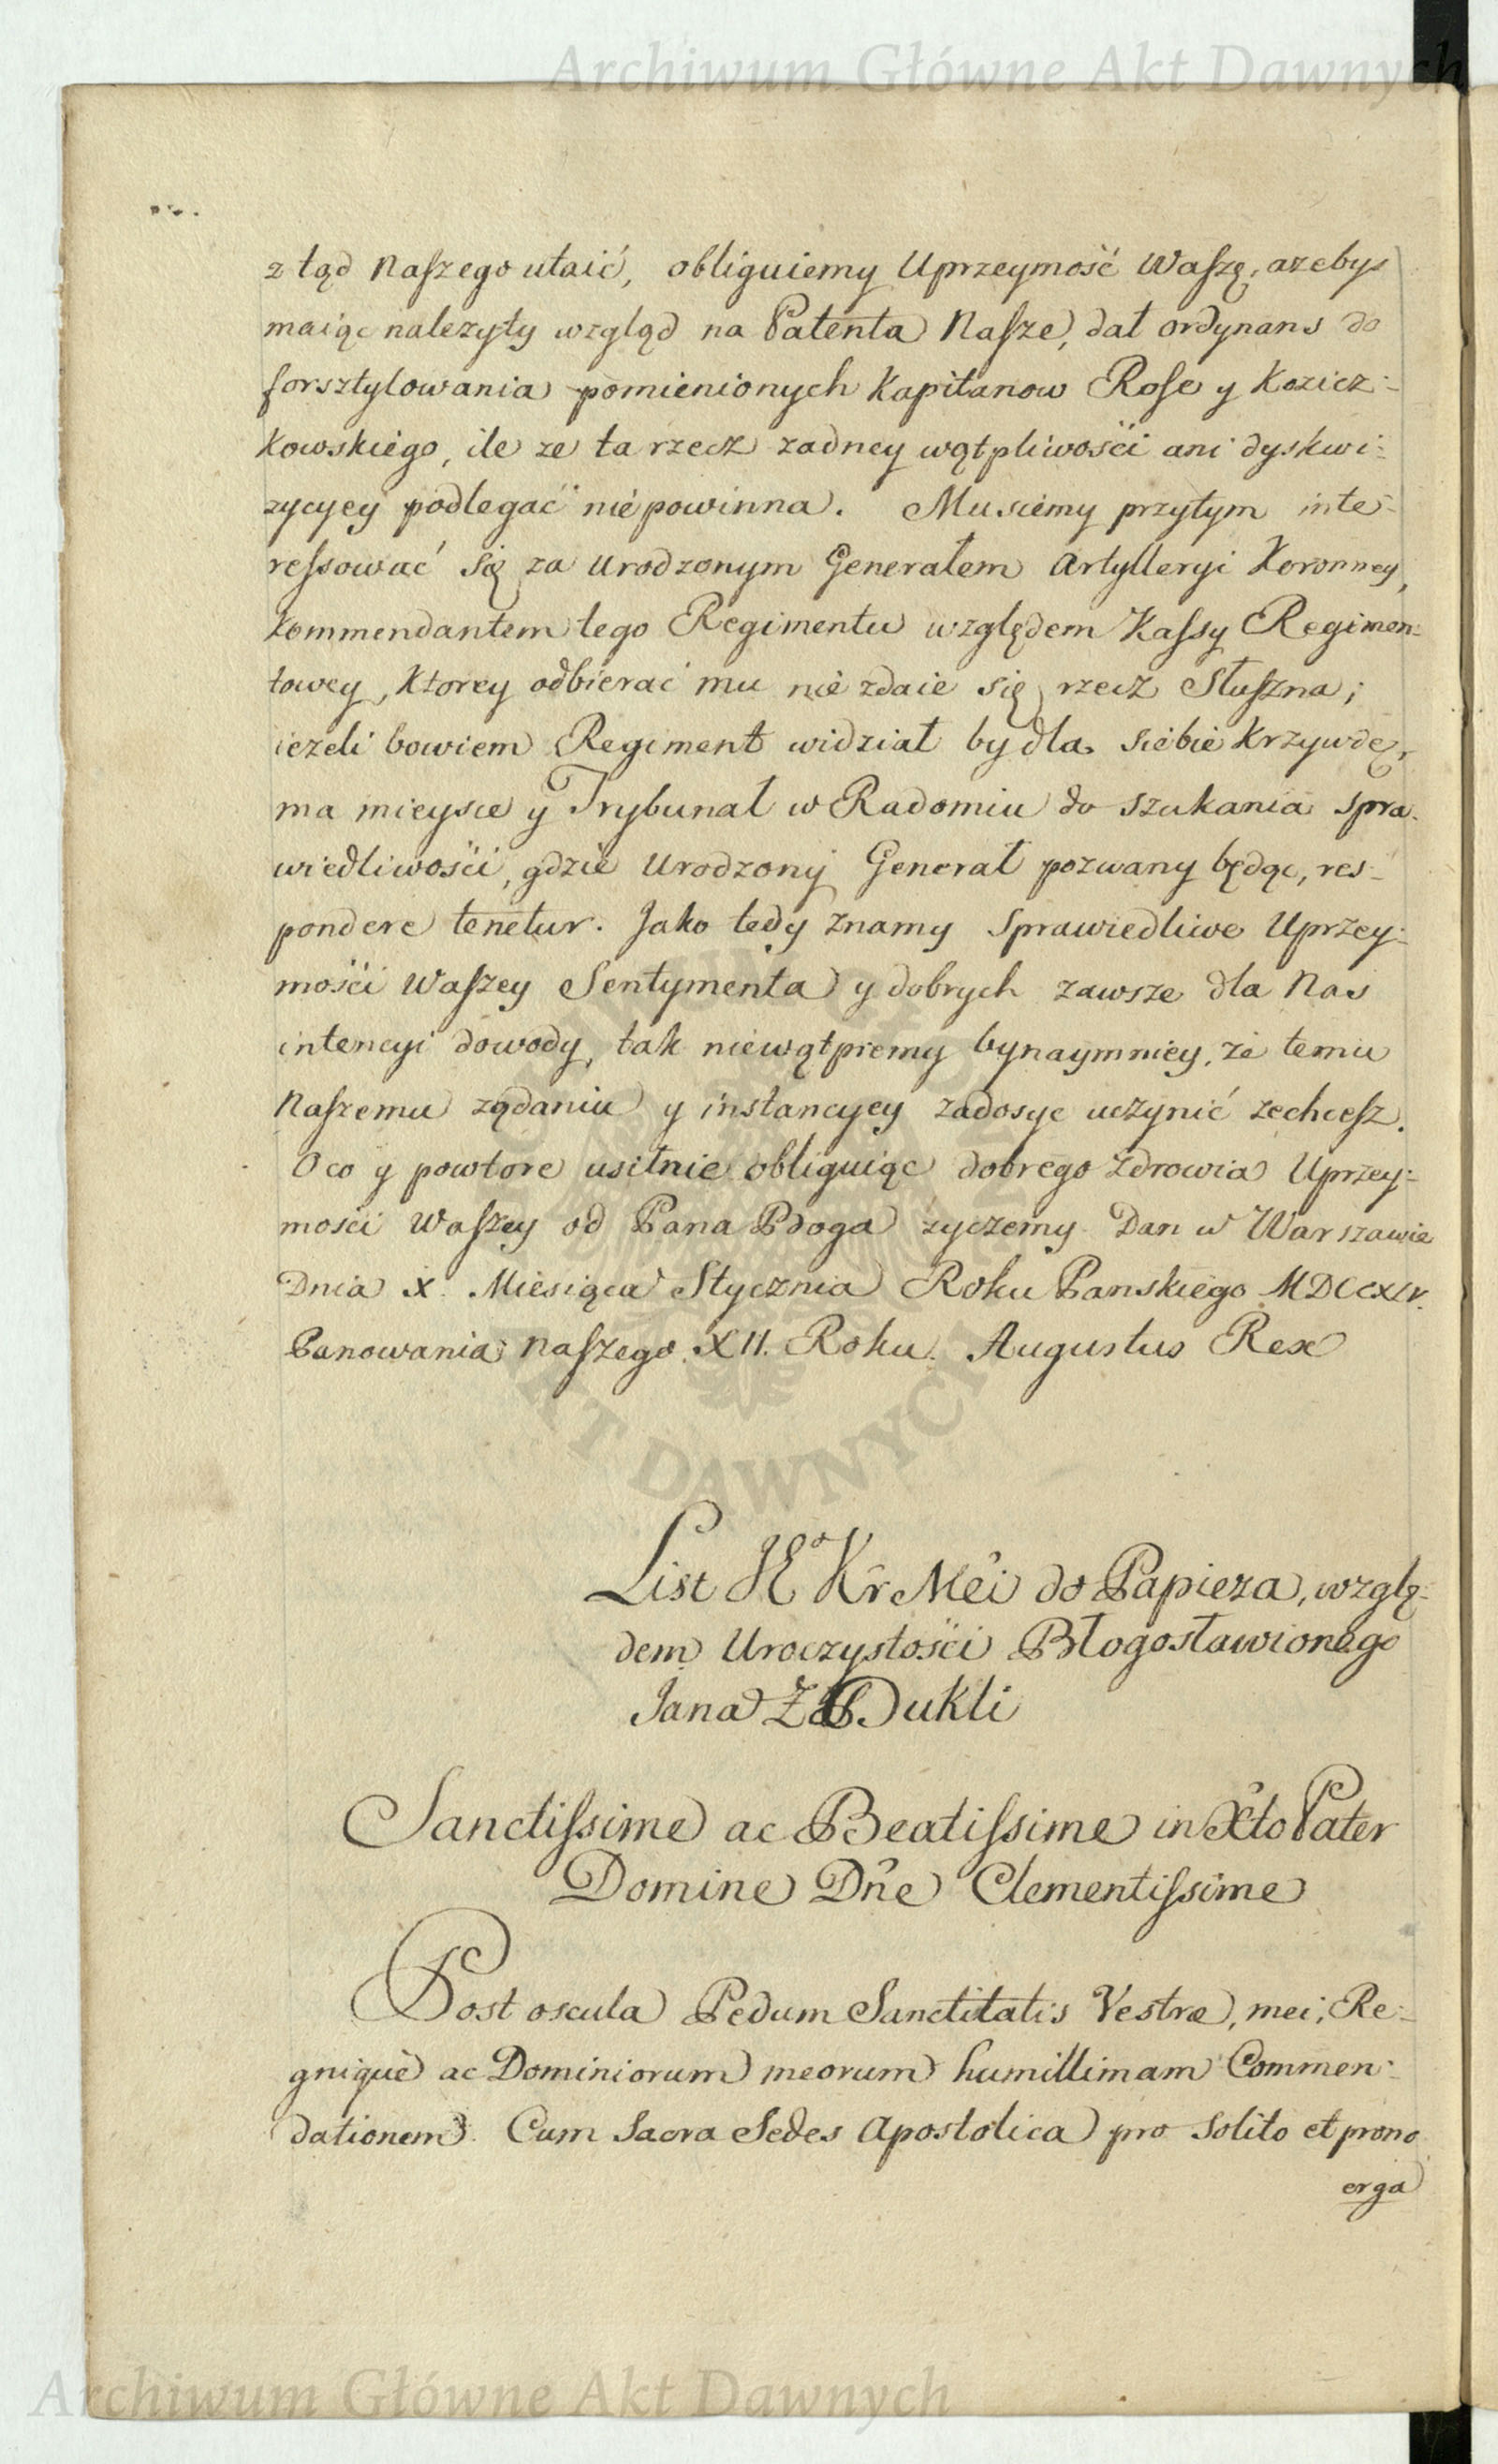 Archiwum Główne Akt Dawnych
ztąd Naszego utaić, obliguiemy Uprzeymość Waszę, azebys
maiąc nalezyty wzgląd na Patenta Nasze, dał ordynans do
forsztylowania pomienionych Kapitanow Rose y Kozicz:
kowskiego, ile ze ta rzecz zadney wątpliwości ani dyskwi:
zycyey podlegać niepowinna. Musiemy przytym inte:
ressować się za Urodzonym Generałem Artylleryi Koronney,
Kommendantem tego Regimentu względem Kassy Regimen:
towey, Ktorey odbierać mu nie zdaie się rzecz Słuszna;
iezeli bowiem Regiment widział by dla siebie Krzywdę,
ma mieysce y Trybunał w Radomiu do szukania spra:
wiedliwości, gdzie Urodzony Generał pozwany będąc, res:
pondere tenetur. Jako tedy znamy sprawiedliwe Uprzey:
mości Waszey Sentymenta y dobrych zawsze dla Nas
intencyi dowody, tak niewątpiemy bynaymniey, że temu
Naszemu ządaniu y instancyey zadosyc uczynić zechcesz.
O co y powtore usilnie obliguiąc dobrego zdrowia Uprzey:
mości Waszey od Pana Boga życzemy. Dan w Warszawie
Dnia X. Miesiąca Stycznia Roku Panskiego MDCCXLV.
Panowania Naszego XII. Roku. Augustus Rex
List JE° Kr Mci do Papieza, wzglę:
dem Uroczystości Błogosławionego
Jana Z Dukli
Sanctissime ac Beatissime in Xto Pater
Domine Dne Clementissime
Post oscula Pedum Sanctitatis Vestræ, mei, Re:
gnique ac Dominiorum meorum humillimam Commen:
dationem. Cum Sacra Sedes Apostolica pro solito et prono
erga
AKT DAWNYCH
Archiwum Główne Akt Dawnych